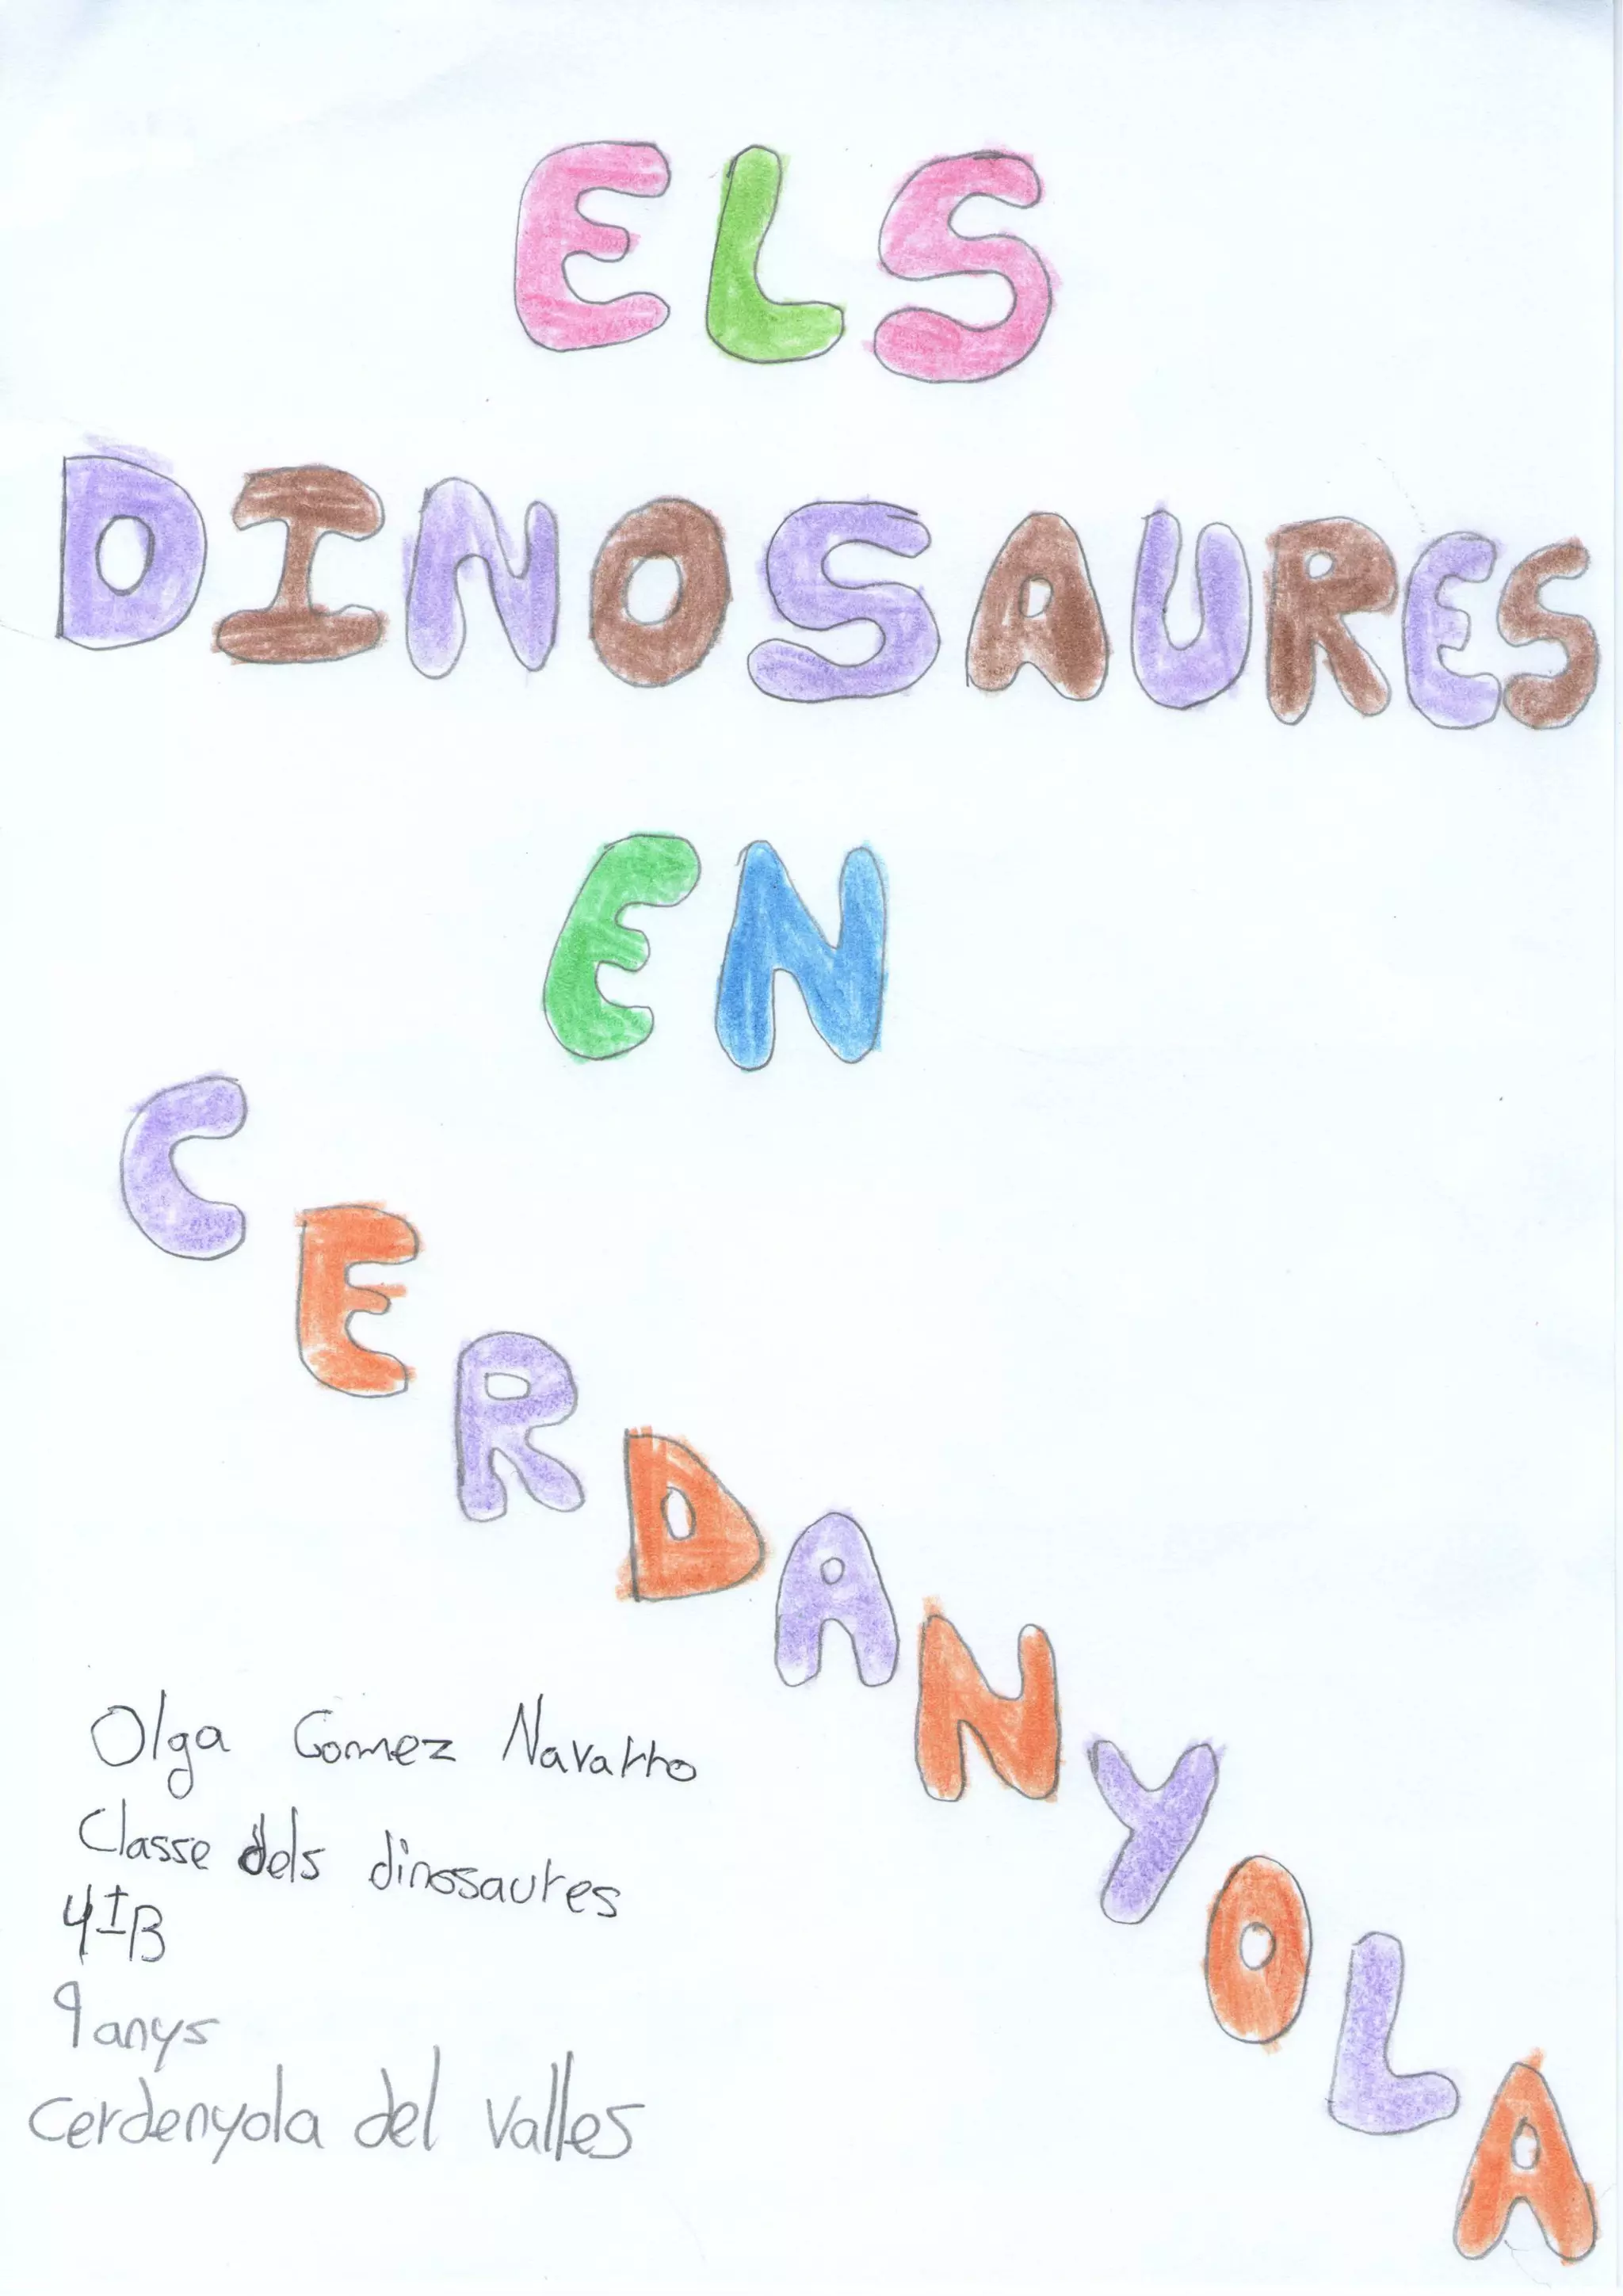 ELS
DINOSAURES
EN
CERDANYOLA
Olga Gomez Navarro
Classe dels dinosaures
4IB
9 anys
cerdenyola del valles